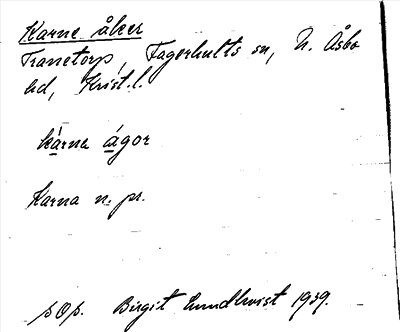 Karne åker
Tranetorp, Fagerhults sn, N. Åsbo
hd, Krist. l.
kárna ágor
Karna n. pr.
sOp. Birgit Lundkvist 1939.